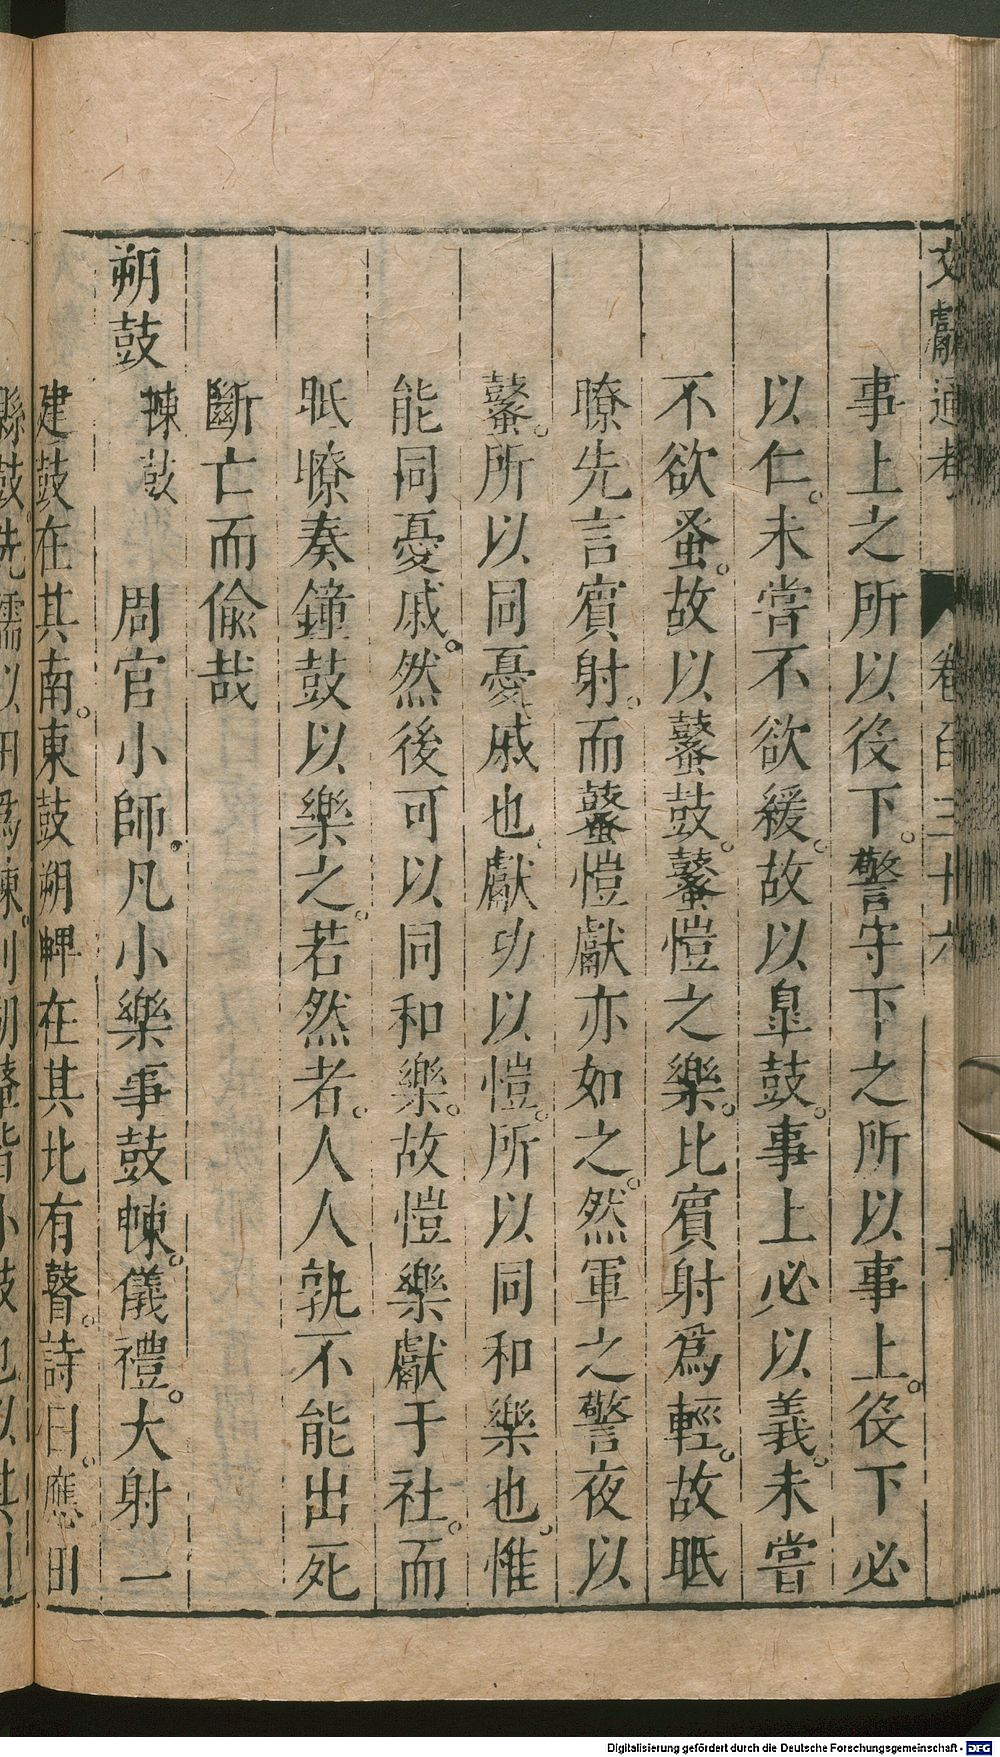 文獻通考 卷百三十六 十
事上之所以役下。警守下之所以事上。役下必
以仁。未嘗不欲緩。故以皐鼓。事上必以義。未嘗
不欲蚤。故以鼜鼓。鼜愷之樂。比賓射爲輕。故眡
瞭先言賓射。而鼜愷獻亦如之。然軍之警夜以
鼜。所以同憂戚也。獻功以愷。所以同和樂也。惟
能同憂戚。然後可以同和樂。故愷樂獻于社。而
眡嘹奏鐘鼓以樂之。若然者。人人孰不能出死
斷亡而偷哉
朔鼓 㯥鼓 周官小師。凡小樂事鼓㯥。儀禮。大射一
建鼓在其南。東鼓朔鼙在其北有瞽。詩曰。應田
縣鼓先儒以田爲㯥。則朔鼙皆小鼓也以其引
Digitalisierung gefördert durch die Deutsche Forschungsgemeinschaft - DFG